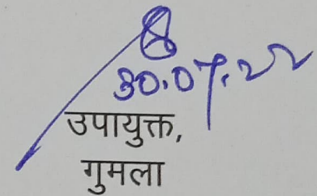 30.07.22
उपायुक्त,
गुमला